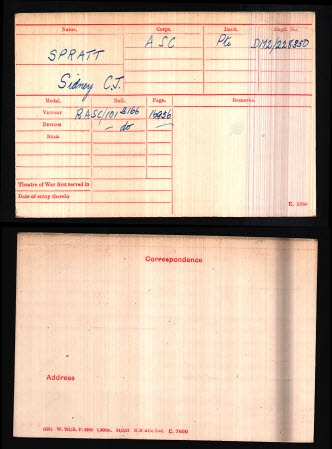 Name. Corps. Rank. Regtl. No.
SPRATT A S C Pte DM2/228350
Sidney C.J.
Medal. Roll. Page. Remarks.
VICTORY RASC/101 B166 16936
BRITISH – do –
STAR
Theatre of War first served in
Date of entry therein
K. 1380
Correspondence
Address
E. 7600